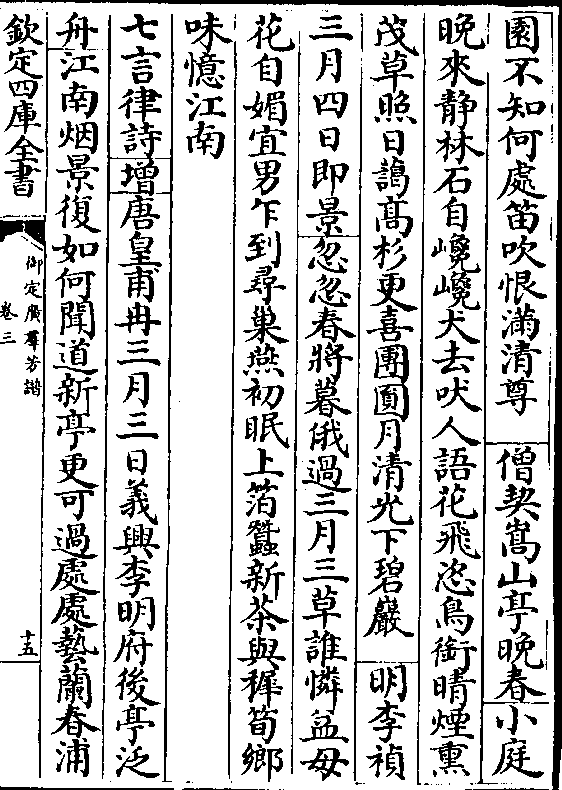 園不知何處笛吹恨滿清尊　僧契嵩山亭晚春小庭
晚來靜林石自巉巉犬去吠人語花飛恣鳥銜晴煙熏
茂草照日藹髙杉更喜團圓月清光下碧巖　明李禎
三月四日即景忽忽春將暮俄過三月三草誰憐益母
花自媚宜男乍到尋巢燕初眠上箔蠶新茶與穉筍鄉
味憶江南
七言律詩增唐皇甫冉三月三日義興李明府後亭泛
舟江南烟景復如何聞道新亭更可過處處藝蘭春浦
欽定四庫全書
御定廣羣芳譜
卷三
十五